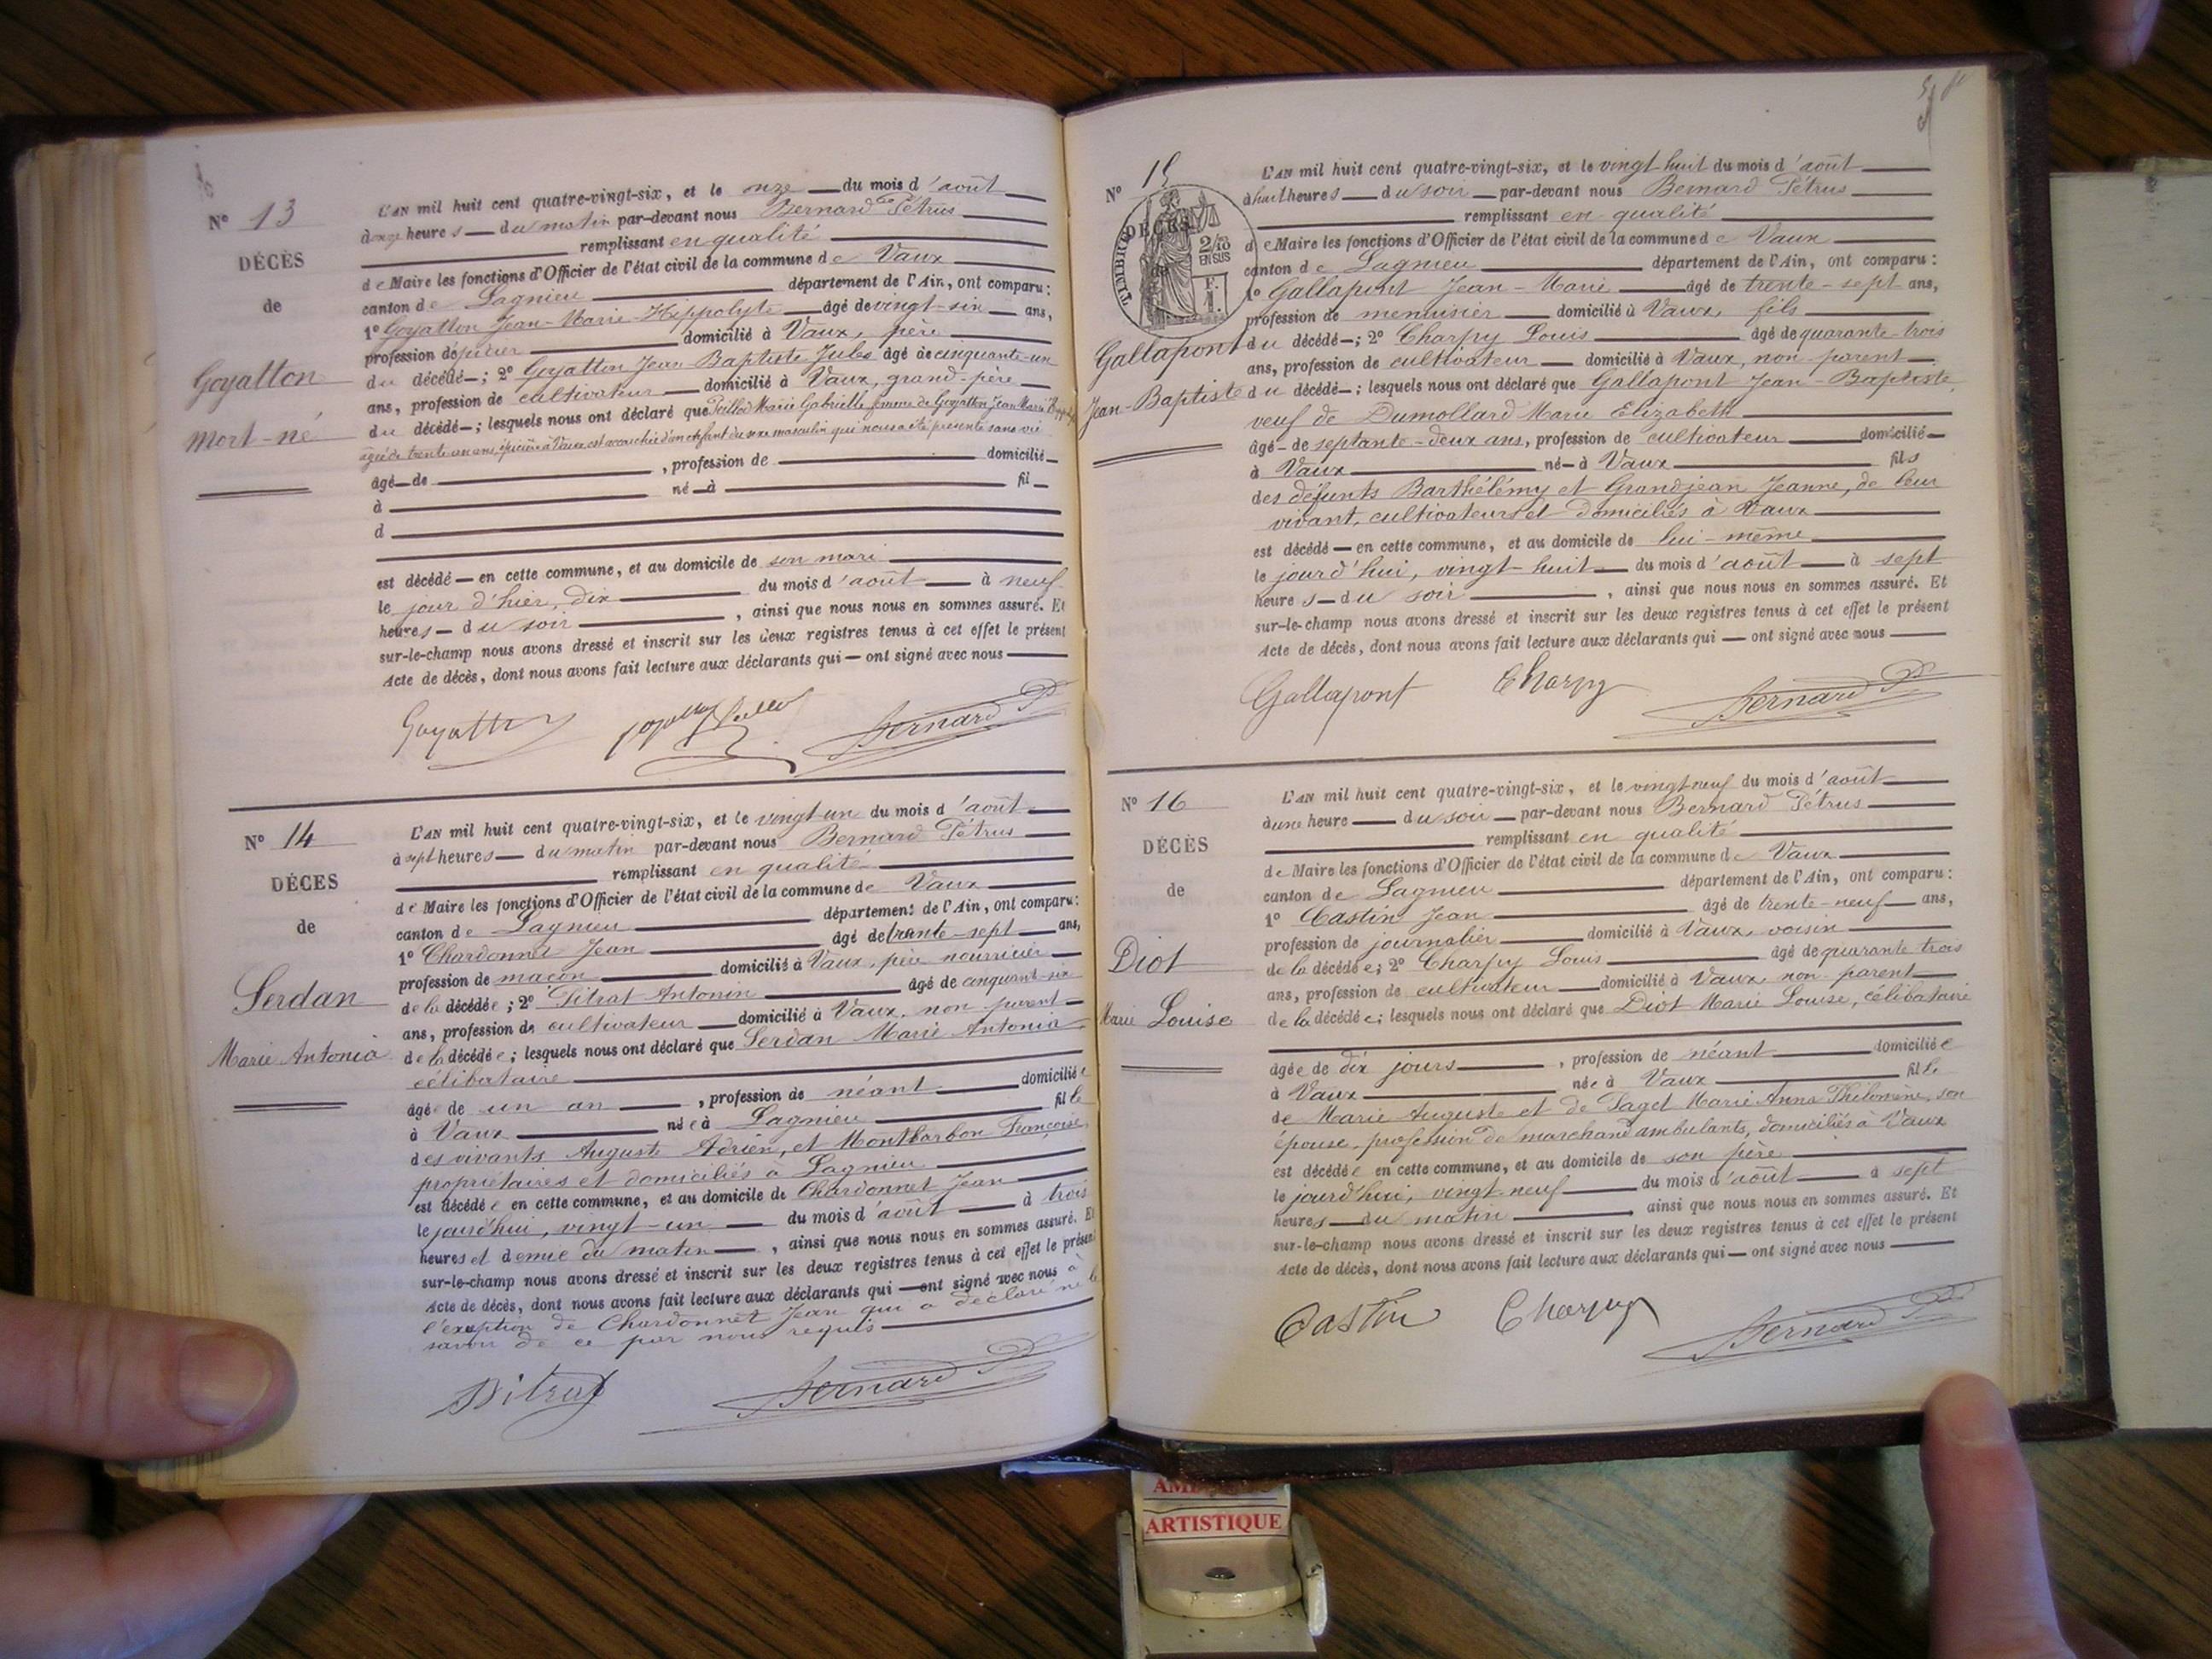 N° 13
DÉCÈS
de
Goyatton
Mort-né
L'AN mil huit cent quatre-vingt-six, et le onze du mois d'août
à onze heures du matin par-devant nous Bernard Pétrus
remplissant en qualité
de Maire les fonctions d'Officier de l'état civil de la commune de Vaux
canton de Lagnieu département de l'Ain, ont comparu:
1° Goyatton Jean-Marie-Hippolyte âgé de vingt-six ans,
profession d'épicier domicilié à Vaux, père
du décédé; 2° Goyatton Jean Baptiste Jules âgé de cinquante-un
ans, profession de cultivateur domicilié à Vaux, grand-père
du décédé; lesquels nous ont déclaré que Peillod Marie Gabrielle femme de Goyatton Jean Marie
âgée de trente un ans épicière à Vaux est accouchée d'un enfant du sexe masculin qui nous a été présenté sans vie
âgé de , profession de domicilié
à né à fil
d
est décédé en cette commune, et au domicile de son mari
le jour d'hier, dix du mois d'août à neuf
heures du soir , ainsi que nous nous en sommes assuré. Et
sur-le-champ nous avons dressé et inscrit sur les deux registres tenus à cet effet le présent
Acte de décès, dont nous avons fait lecture aux déclarants qui ont signé avec nous
Goyatton Bernard P
N° 14
DÉCES
de
Serdan
Marie Antonia
L'AN mil huit cent quatre-vingt-six, et le vingt-un du mois d'août
à sept heures du matin par-devant nous Bernard Pétrus
remplissant en qualité
de Maire les fonctions d'Officier de l'état civil de la commune de Vaux
canton de Lagnieu département de l'Ain, ont comparu:
1° Chardonnet Jean âgé de trente-sept ans,
profession de maçon domicilié à Vaux, père nourricier
de la décédée; 2° Pitrat Antonin âgé de cinquant-six
ans, profession de cultivateur domicilié à Vaux, non parent
de la décédée; lesquels nous ont déclaré que Serdan Marie Antonia
célibataire
âgée de un an , profession de néant domicilié
à Vaux née à Lagnieu fille
des vivants Auguste Adrien, et Montbarbon Françoise,
propriétaires et domiciliés à Lagnieu
est décédée en cette commune, et au domicile de Chardonnet Jean
le jourd'hui, vingt-un du mois d'août à trois
heures et demie du matin , ainsi que nous nous en sommes assuré. Et
sur-le-champ nous avons dressé et inscrit sur les deux registres tenus à cet effet le présent
Acte de décès, dont nous avons fait lecture aux déclarants qui ont signé avec nous à
l'exeption de Chardonnet Jean qui a déclaré ne le
savoir de ce par nous requis
Pitrat Bernard P
N° 15
TIMBRE
DÉCÈS
2/10 EN SUS
de
F. 1.
Gallapont
Jean-Baptiste
L'AN mil huit cent quatre-vingt-six, et le vingt-huit du mois d'août
à huit heures du soir par-devant nous Bernard Pétrus
remplissant en qualité
de Maire les fonctions d'Officier de l'état civil de la commune de Vaux
canton de Lagnieu département de l'Ain, ont comparu:
1° Gallapont Jean-Marie âgé de trente-sept ans,
profession de menuisier domicilié à Vaux, fils
du décédé; 2° Charpy Louis âgé de quarante-trois
ans, profession de cultivateur domicilié à Vaux, non-parent
du décédé; lesquels nous ont déclaré que Gallapont Jean-Baptiste,
veuf de Dumollard Marie Elizabeth
âgé de septante-deux ans, profession de cultivateur domicilié
à Vaux né à Vaux fils
des défunts Barthélémy et Grandjean Jeanne, de leur
vivant, cultivateurs et domiciliés à Vaux
est décédé en cette commune, et au domicile de lui-même
le jourd'hui, vingt-huit du mois d'août à sept
heures du soir , ainsi que nous nous en sommes assuré. Et
sur-le-champ nous avons dressé et inscrit sur les deux registres tenus à cet effet le présent
Acte de décès, dont nous avons fait lecture aux déclarants qui ont signé avec nous
Gallapont Charpy Bernard P
N° 16
DÉCÈS
de
Diot
Marie Louise
L'AN mil huit cent quatre-vingt-six, et le vingt-neuf du mois d'août
à une heure du soir par-devant nous Bernard Pétrus
remplissant en qualité
de Maire les fonctions d'Officier de l'état civil de la commune de Vaux
canton de Lagnieu département de l'Ain, ont comparu:
1° Castin Jean âgé de trente-neuf ans,
profession de journalier domicilié à Vaux, voisin
de la décédée; 2° Charpy Louis âgé de quarante trois
ans, profession de cultivateur domicilié à Vaux, non-parent
de la décédée; lesquels nous ont déclaré que Diot Marie Louise, célibataire
âgée de dix jours , profession de néant domiciliée
à Vaux née à Vaux fille
de Marie Auguste et de Paget Marie Anna Philomène, son
épouse, profession de marchand ambulants, domiciliés à Vaux
est décédée en cette commune, et au domicile de son père
le jourd'hui, vingt-neuf du mois d'août à sept
heures du matin ainsi que nous nous en sommes assuré. Et
sur-le-champ nous avons dressé et inscrit sur les deux registres tenus à cet effet le présent
Acte de décès, dont nous avons fait lecture aux déclarants qui ont signé avec nous
Castin Charpy Bernard P
ARTISTIQUE